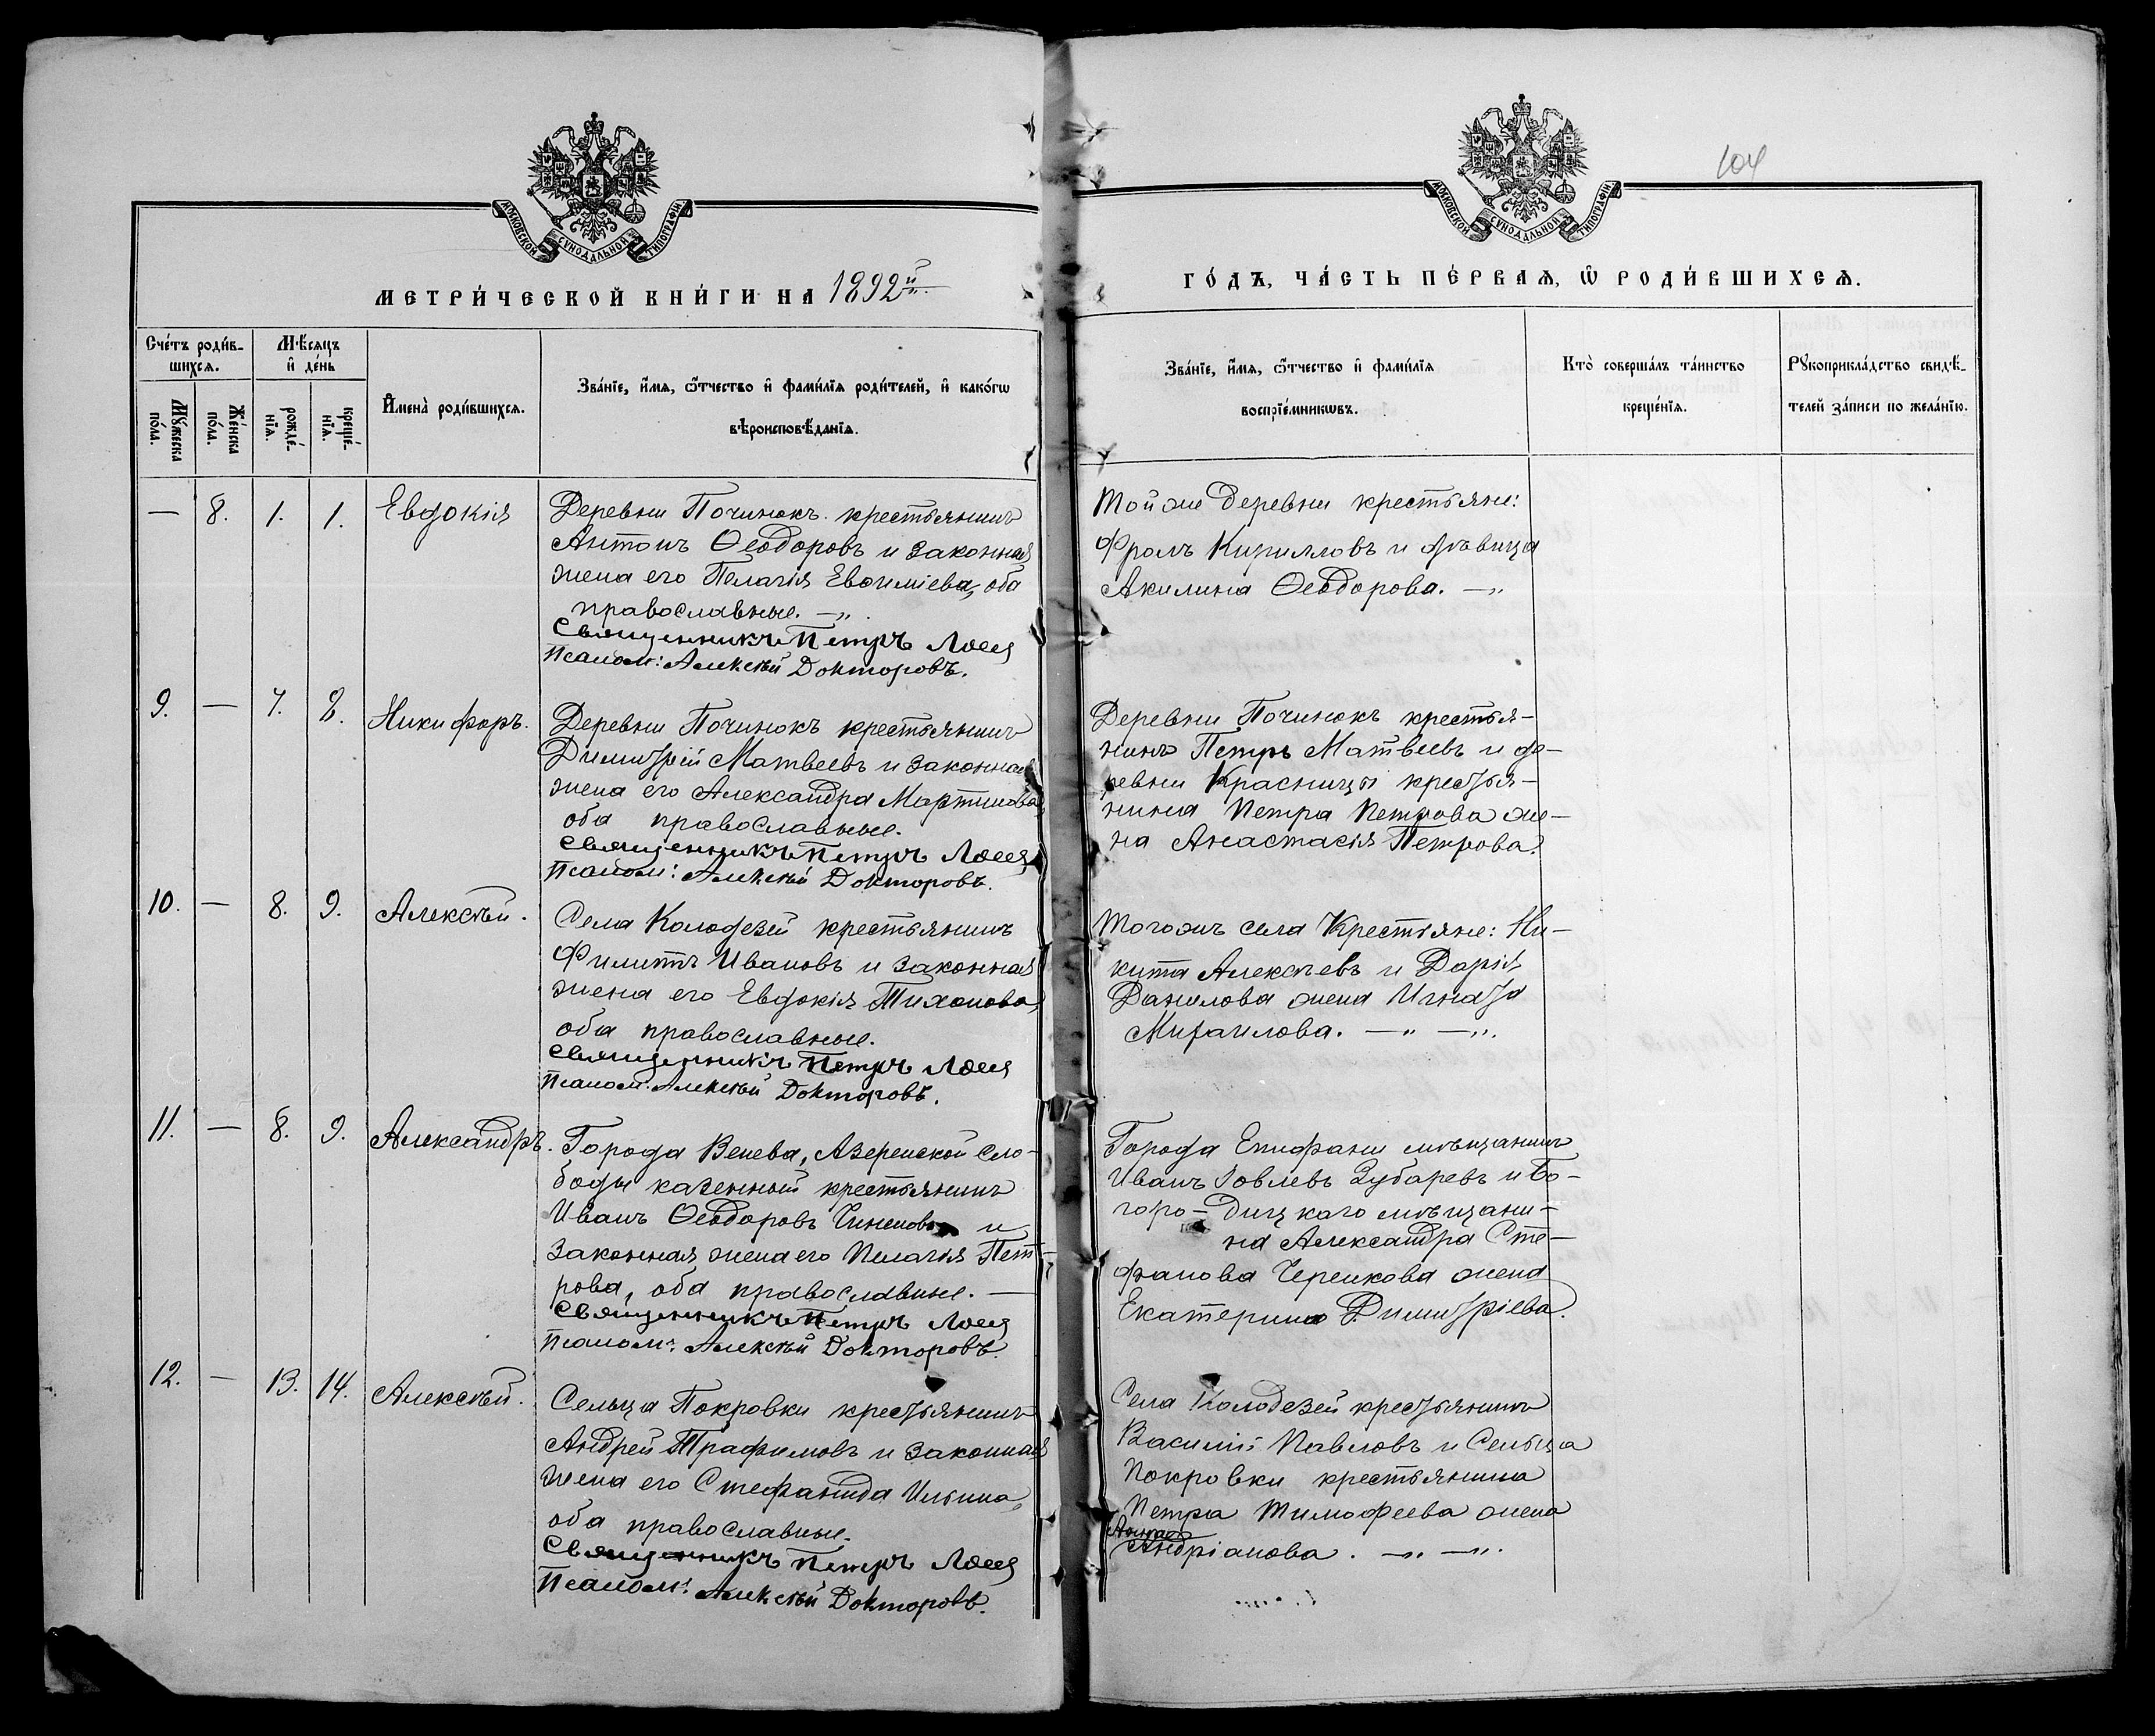 104
МОСКОВСКОЙ СѴНОДАЛЬНОЙ ТИПОГРАФІИ
МОСКОВСКОЙ СѴНОДАЛЬНОЙ ТИПОГРАФІИ
МЕТРИ́ЧЕСКОЙ КНИ́ГИ НА 1892й
ГО́ДЪ, ЧА́СТЬ ПЕ́РВАѦ, Ѡ҆ РОДИ́ВШИХСѦ.
Сче́тъ роди́в-
шихсѧ.
Мꙋ́жеска
по́ла.
Же́нска
по́ла.
Мѣ́сѧцъ
и҆ де́нь
рожде́-
нїѧ.
креще́-
нїѧ.
И҆мена̀ роди́вшихсѧ.
Зва́нїе, и҆́мѧ, ѻ҆́тчество и҆ фами́лїѧ роди́телей, и҆ како́гѡ
вѣроисповѣ́данїѧ.
Зва́нїе, и҆́мѧ, ѻ҆́тчество и҆ фами́лїѧ
воспрїе́мникѡвъ.
Кто̀ соверша́лъ та́инство
креще́нїѧ.
Рꙋкоприкла́дство свидѣ́-
телей за́писи по жела́нїю.
— 8. 1. 1. Евдокія
Деревни Починокъ крестьянинъ
Антонъ Ѳеодоровъ и законная
жена его Пелагія Евѳиміева, оба
православные. —„
Священникъ Петръ
Псалом: Алексѣй Докторовъ.
Той же деревни крестьяне:
Фролъ Кирилловъ и дѣвица
Акилина Ѳеодорова. —„
9. — 7. 8. Никифоръ.
Деревни Починокъ крестьянинъ
Димитрій Матвеевъ и законная
жена его Александра Мартинова,
оба православные.
Священникъ Петръ
Псалом: Алексѣй Докторовъ.
Деревни Починокъ крестья-
нинъ Петръ Матвеевъ и де-
ревни Красницы крестья-
нина Петра Петрова же-
на Анастасія Петрова.
10. — 8. 9. Алексѣй.
Села Колодезей крестьянинъ
Филиппъ Ивановъ и законная
жена его Евдокія Тихонова,
оба православные.
Священникъ Петръ
Псалом: Алексѣй Докторовъ.
Тогожъ села Крестьяне: Ни-
кита Алексѣевъ и Дарія
Данилова жена Игната
Михаилова. —„ —„.
11. — 8. 9. Александръ.
Города Венева, Озеренской сло-
боды казенный крестьянинъ
Иванъ Ѳеодоровъ и
законная жена его Пелагія Пет-
рова, оба православные. —
Священникъ Петръ
Псалом: Алексѣй Докторовъ.
Города Епифани мѣщанинъ
Иванъ Зубаревъ и Бо-
горо-дицкаго мѣщани-
на Александра Сте-
фанова Черенкова жена
Екатерина Димитріева.
12. — 13. 14. Алексѣй.
Сельца Покровки крестьянинъ
Андрей Трафимовъ и законная
жена его Стефанида Ильина,
оба православные.
Священникъ Петръ
Псалом: Алексѣй Докторовъ.
Села Колодезей крестьянинъ
Василій Павловъ и Сельца
Покровки крестьянина
Петра Тимофеева жена
Анна
Андріанова. —„ —„.